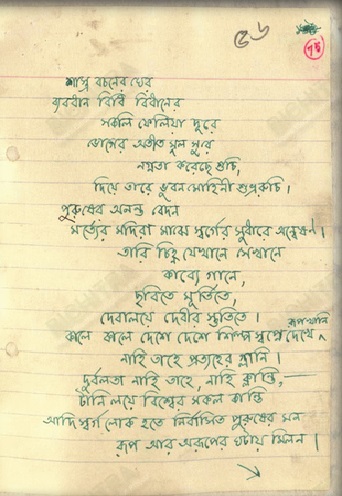 ৫৬
৭৪
শাস্ত্র বচনের ঘের
ব্যবধান বিধি বিধানের
সকলি ফেলিয়া দূরে
ভোগের অতীত মূল সুরে
নগ্নতা করেছে শুচি,
দিয়ে তারে ভুবনমোহিনী শুভ্ররুচি।
পুরুষের অনন্ত বেদন
মর্ত্যের মদিরা মাঝে স্বর্গের সুধারে অন্বেষণ।
তারি চিহ্ন যেখানে সেখানে
কাব্যে গানে,
ছবিতে মূর্তিতে,
দেবালয়ে দেবীর স্তুতিতে।
কালে কালে দেশে দেশে শিল্প স্বপ্নে দেখে রূপখানি
নাহি তাহে প্রত্যহের গ্লানি।
দুর্বলতা নাহি তাহে, নাহি ক্লান্তি,—
টানি লয়ে বিশ্বের সকল কান্তি
আদিস্বর্গলোক হতে নির্বাসিত পুরুষের মন
রূপ আর অরূপের ঘটায় মিলন।